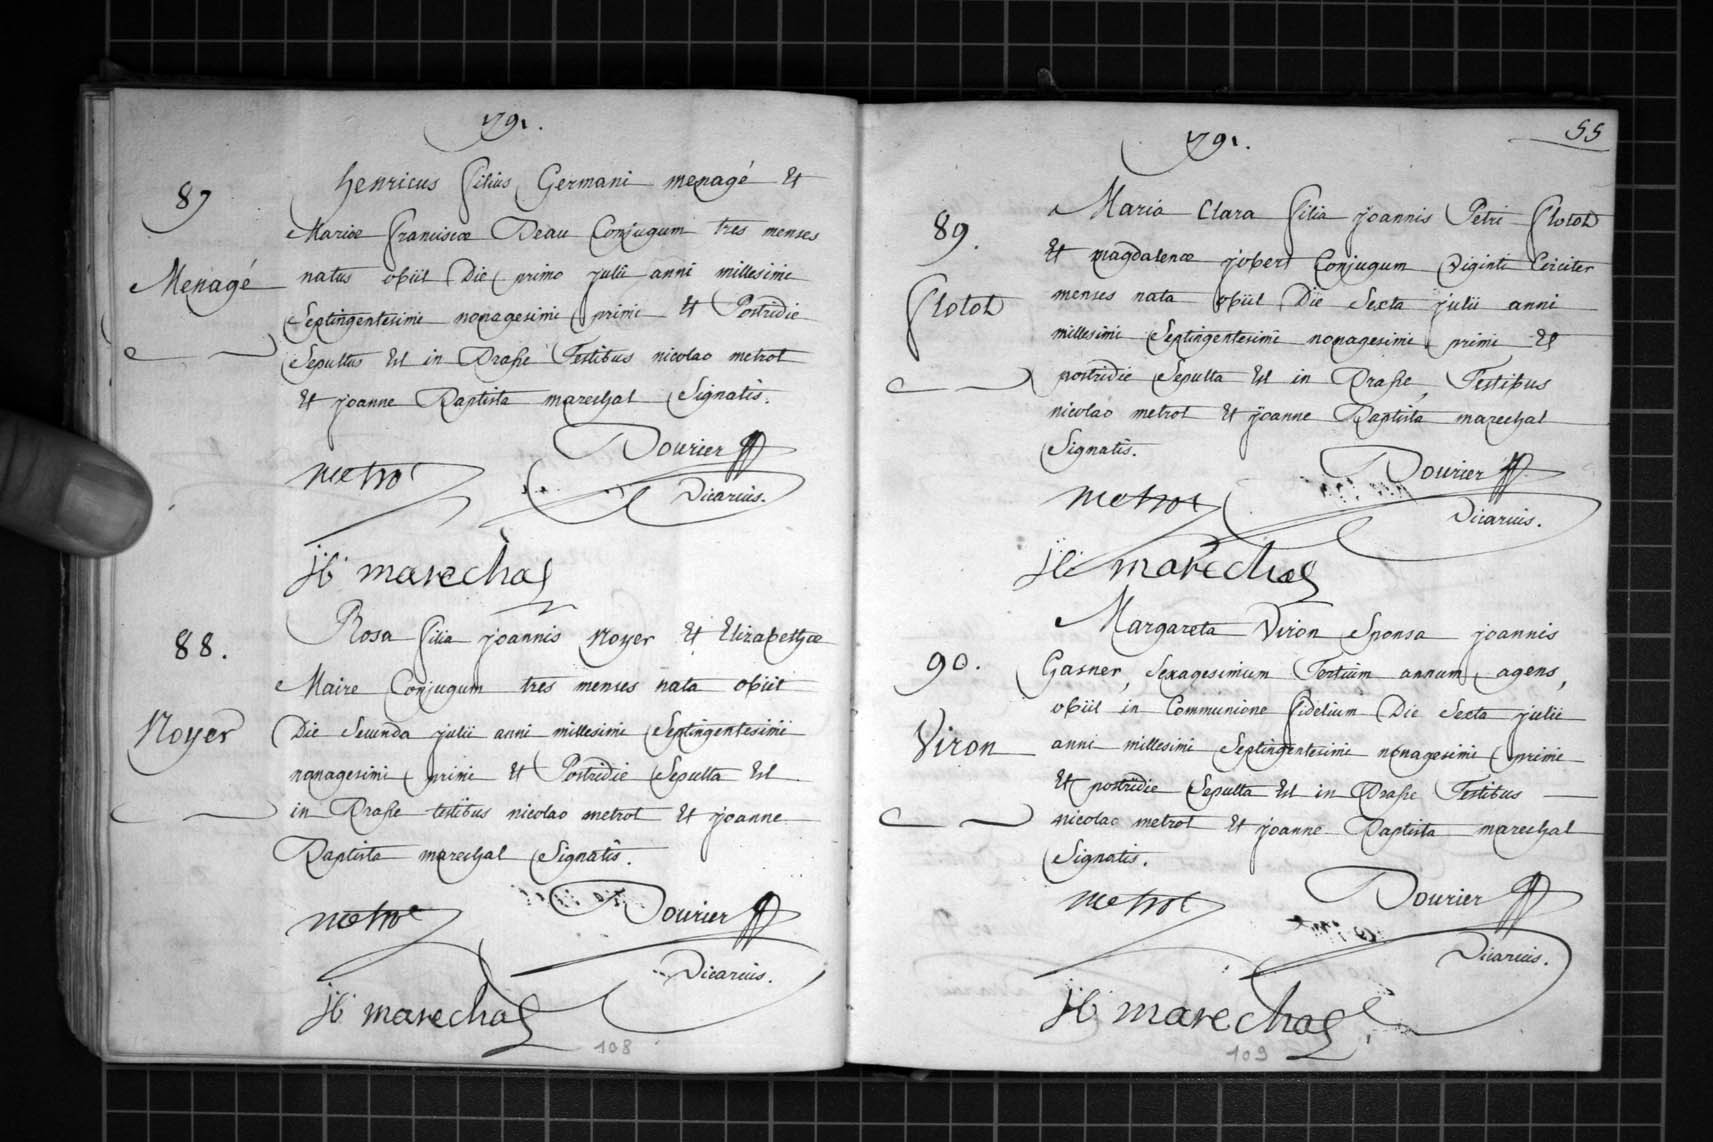 1791.
87
Menagé
henricus filius Germani menagé Et
Mariæ franciscæ Beau Conjugum tres menses
natus obiit Die primo julii anni millesimi
Septingentesimi nonagesimi primi Et Postridie
Sepultus Est in Brasse Testibus nicolao metrot
Et joanne Baptista marechal Signatis.
metrot
Bourier
Vicarius.
jb marechal
88.
Noyer
Rosa filia joannis Noyer Et Elizabethæ
Maire Conjugum tres menses nata obiit
Die Secunda julii anni millesimi Septingentesimi
nonagesimi primi Et Postridie Sepulta Est
in Brasse testibus nicolao metrot Et joanne
Baptista marechal Signatis.
metrot
Bourier
Vicarius.
jb marechal
108
1791.
55
89.
Flotot
Maria Clara filia joannis Petri Flotot
Et magdalenæ jobert Conjugum Viginti Circiter
menses nata obiit Die Sexta julii anni
millesimi Septingentesimi nonagesimi primi Et
postridie Sepulta Est in Brasse, Testibus
nicolao metrot Et joanne Baptista marechal
Signatis.
metrot
Bourier
Vicarius.
jb marechal
90.
Viron
Margareta Viron Sponsa joannis
Gasner, Sexagesimum Tertium annum agens,
obiit in Communione fidelium Die Sexta julii
anni millesimi Septingentesimi nonagesimi primi
Et postridie Sepulta Est in Brasse Testibus
nicolao metrot Et joanne Baptista marechal
Signatis.
metrot
Bourier
Vicarius.
jb marechal
109